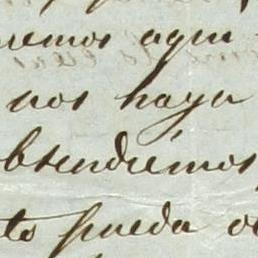 remos aqui
nos haya
btendremos
to pueda o